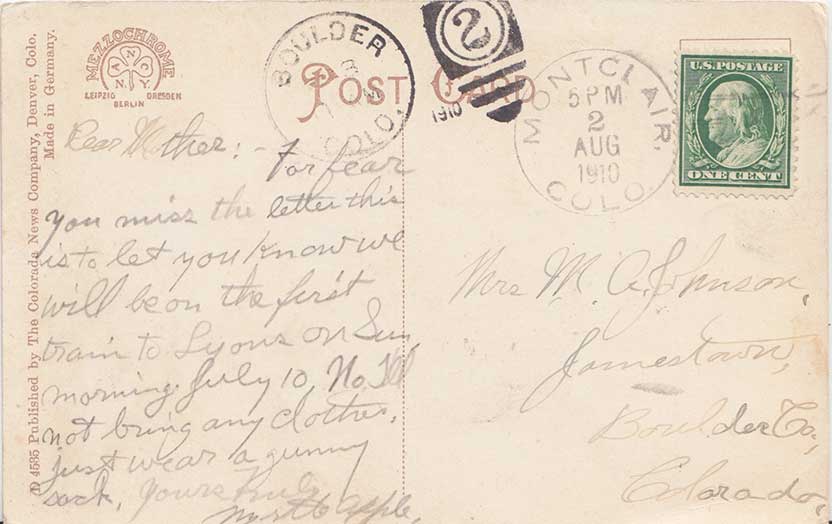 D 4535 Published by The Colorado News Company, Denver, Colo.
Made in Germany.
MEZZOCHROME
A N C
N.Y.
LEIPZIG DRESDEN
BERLIN
POST CARD
BOULDER
3
COLO.
2
1910
MONTCLAIR,
5 PM
2
AUG
1910
COLO.
U.S. POSTAGE
ONE CENT
Dear Mother: - For fear
you miss the letter this
is to let you know we
will be on the first
train to Lyons on Sun,
morning July 10, No I'll
not bring any clothes,
just wear a gunny
sack, Yours truly
Apple,
Mrs M. A. Johnson,
Jamestown,
Boulder Co,
Colorado,